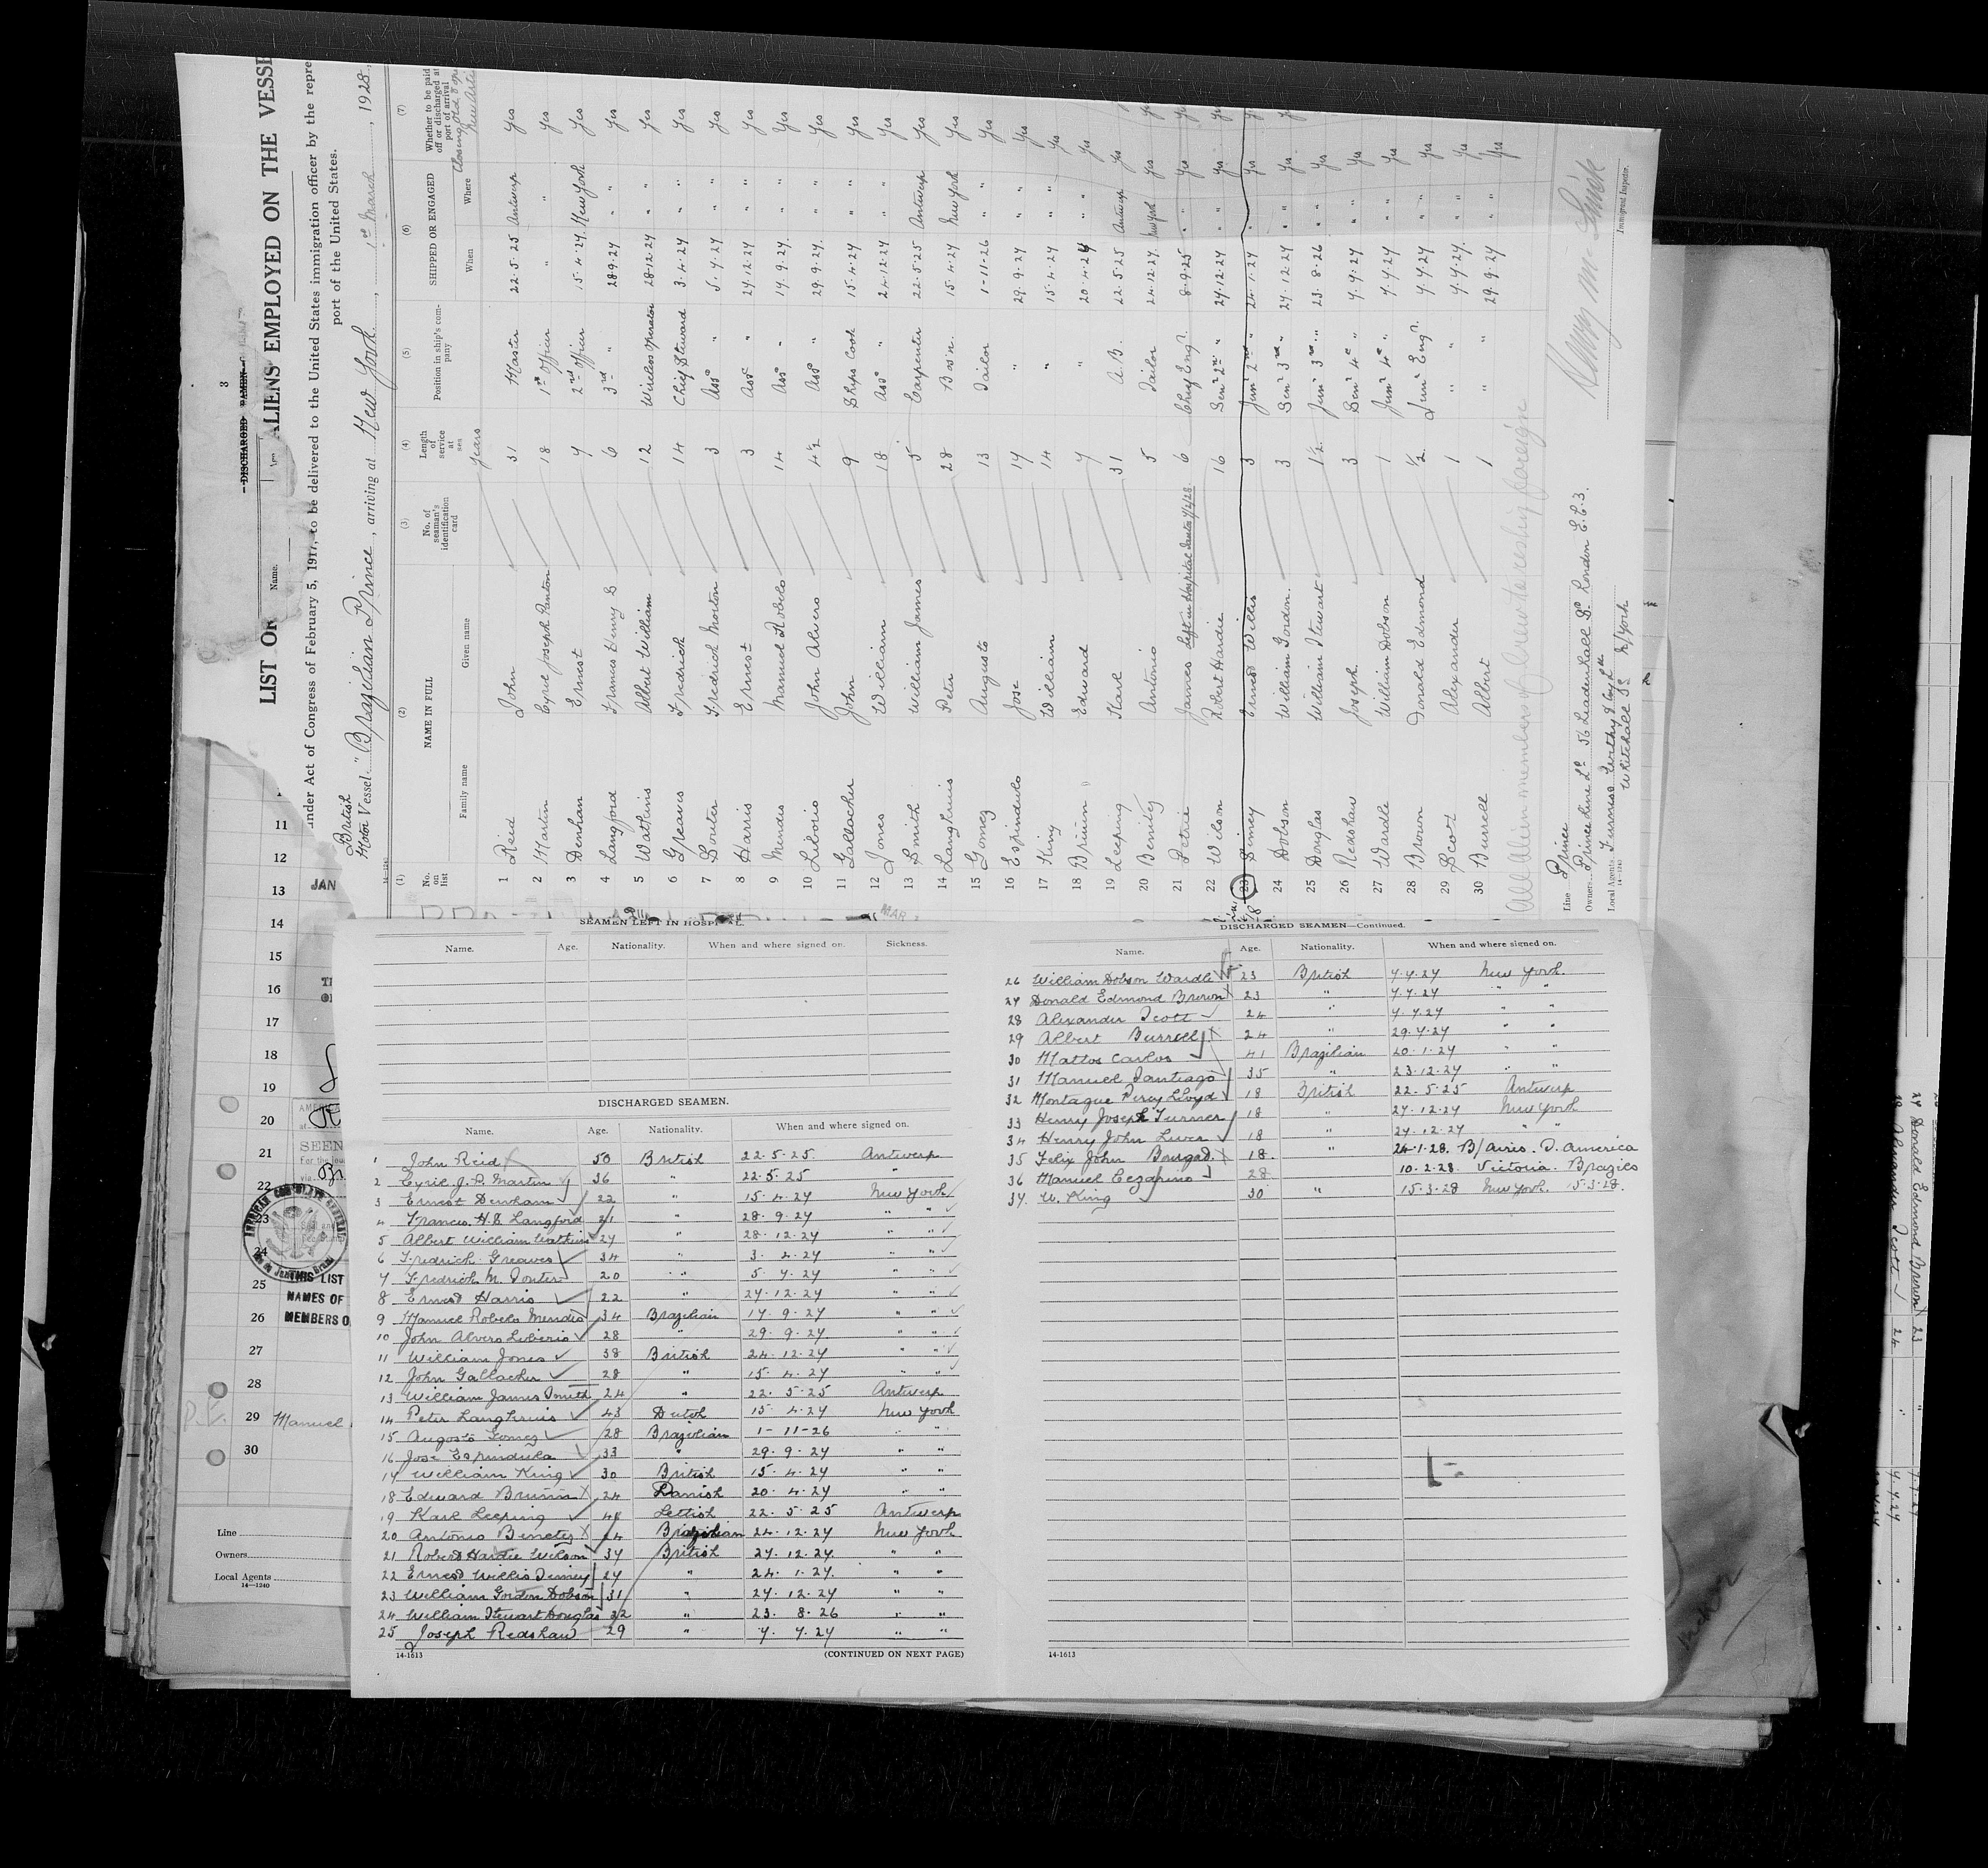 3
DISCHARGED SEAMEN
LIST OF ALIENS EMPLOYED ON THE VESSE
Name. Age
under Act of Congress of February 5, 1917, to be delivered to the United States immigration officer by the repre
port of the United States.
British
Motor Vessel "Brazilian Prince, arriving at New York, 1st March, 1928,
14-1240
(1) (2) (3) (4) (5) (6) (7)
No. on list NAME IN FULL No. of seaman's identification card Length of service at sea Position in ship's company SHIPPED OR ENGAGED Whether to be paid off or discharged at port of arrival
Family name Given name When Where
Years Closing old & open New Arti
1 Reid John 31 Master 22.5.25 Antwerp Yes
2 Martin Cyril Joseph Panton 18 1st Officer " " Yes
3 Denham Ernest 7 2nd Officer 15.4.27 New York Yes
4 Langford Francis Henry B 6 3rd " 28.9.27 " " Yes
5 Watkins Albert William 12 Wireless Operator 28.12.27 " " Yes
6 Greaves Fredrick 14 Chief Steward 3.4.27 " " Yes
7 Souter Fredrick Morton 3 Asso " 5.7.27 " " Yes
8 Harris Ernest 3 Asso " 27.12.27 " " Yes
9 Mendis Manuel Robelo 14 Asso " 17.9.27 " " Yes
10 Liborio John Alvers 4½ Asso " 29.9.27 " " Yes
11 Gallacher John 9 Ships Cook 15.4.27 " " Yes
12 Jones William 18 Asso " 24.12.27 " " Yes
13 Smith William James 5 Carpenter 22.5.25 Antwerp Yes
14 Langhruis Peter 28 Bos'n. 15.4.27 New York Yes
15 Gomez Augusto 13 Sailor 1-11-26 " " Yes
16 Espindulo Jose 17 " 29.9.27 " " Yes
17 King William 14 " 15.4.27 " " Yes
18 Bruun Edward 7 " 20.4.27 Yes
19 Leeping Karl 31 A.B. 22.5.25 Antwerp Yes
20 Benitez Antonio 5 Sailor 24.12.27 New York Yes
21 Petrie James Left in Hospital Santos 7/2/28 6 Chief Engr. 8.9.25 " " Yes
22 Wilson Robert Hardie 16 Senr 2nd " 27.12.27 " " Yes
23 Simey Ernest Willis 3 Junr 2nd " 24.1.27 " Yes
24 Dobson William Gordon. 3 Senr 3rd " 27.12.27 " Yes
25 Douglas William Stewart 1½ Junr 3rd " 23.8.26 " " Yes
26 Redshaw Joseph 3 Senr 4th " 7.7.27 " " Yes
27 Wardle William Dobson 1 Junr 4th " 7.7.27 " " Yes
28 Brown Donald Edmond ½ Junr Engr. 7.7.27 " " Yes
29 Scott Alexander 1 " 7.7.27. " " Yes
30 Burrell Albert 1 " 29.9.27 " " Yes
All Alien members of Crew to reship foreign
Line Prince
Owners Prince Line Ld 56 Leadenhall St London E.C.3.
Local Agents Furness Withy & Coy Ld
Whitehall St N/York
14-1240
Immigrant Inspector.
11
12
13 JAN
14
15
16
17
18
19
20
21 SEEN
22
23
24
25 THIS LIST
NAMES OF
26 MEMBERS O
27
28
29 Manuel
30
AMERICAN CONSULATE GENERAL
Rio de Janeiro, Brazil
Line
Owners
Local Agents
14-1240
MAR
SEAMEN LEFT IN HOSPITAL.
Name. Age. Nationality. When and where signed on. Sickness.
DISCHARGED SEAMEN.
Name. Age. Nationality. When and where signed on.
1 John Reid 50 British 22.5.25. Antwerp
2 Cyril J. P. Martin 36 " 22.5.25 "
3 Ernest Denham 22 " 15.4.27 New York
4 Francis. H. B Langford 21 " 28.9.27 " "
5 Albert William Watkins 27 " 28.12.27 " "
6 Fredrick Greaves 34 " 3.4.27 " "
7 Fredrick M. Souter 20 " 5.7.27 " "
8 Ernest Harris 22 " 27.12.27 " "
9 Manuel Robelo Mendis 34 Brazilian 17.9.27 " "
10 John Alvers Liberio 28 " 29.9.27. " "
11 William Jones 38 British 24.12.27 " "
12 John Gallacher 28 " 15.4.27 " "
13 William James Smith 24 " 22.5.25 Antwerp
14 Peter Langhruis 43 Dutch 15.4.27 New York
15 Augosto Gomez 28 Brazilian 1-11-26 " "
16 Jose Espindula 33 " 29.9.27 " "
17 William King 30 British 15.4.27 " "
18 Edward Bruun 24 Danish 20.4.27 " "
19 Karl Leeping 48 Lettish 22.5.25 Antwerp
20 Antonio Benetez 24 Brazilian 24.12.27 New York
21 Robert Hardie Wilson 37 British 27.12.27. " "
22 Ernest Willis Simey 27 " 24.1.27. " "
23 William Gordon Dobson 31 " 27.12.27 " "
24 William Stewart Douglas 32 " 23.8.26 " "
25 Joseph Redshaw 29 " 7.7.27 " "
14-1613 (CONTINUED ON NEXT PAGE)
DISCHARGED SEAMEN—Continued.
Name. Age. Nationality. When and where signed on.
26 William Dobson Wardle 23 British 7.7.27 New York.
27 Donald Edmond Brown 23 " 7.7.27 " "
28 Alexander Scott 24 " 7.7.27 " "
29 Albert Burrell 24 " 29.9.27 " "
30 Mattos Carlos 41 Brazilian 20.1.27 " "
31 Manuel Santiago 35 " 23.12.27 " "
32 Montague Percy Lloyd 18 British 22.5.25 Antwerp
33 Henry Joseph Turner 18 " 27.12.27 New York
34 Henry John Liver 18 " 27.12.27 " "
35 Felix John 18. " 24.1.28. B/Aires. S. America
36 Manuel Cezarino 28 10.2.28. Victoria. Brazils
37. W. King 30 " 15.3.28 New York. 15.3.28.
14-1613
27 Donald Edmond Brown 23 " 7.7.27
28 Alexander Scott 24 " 7.7.27